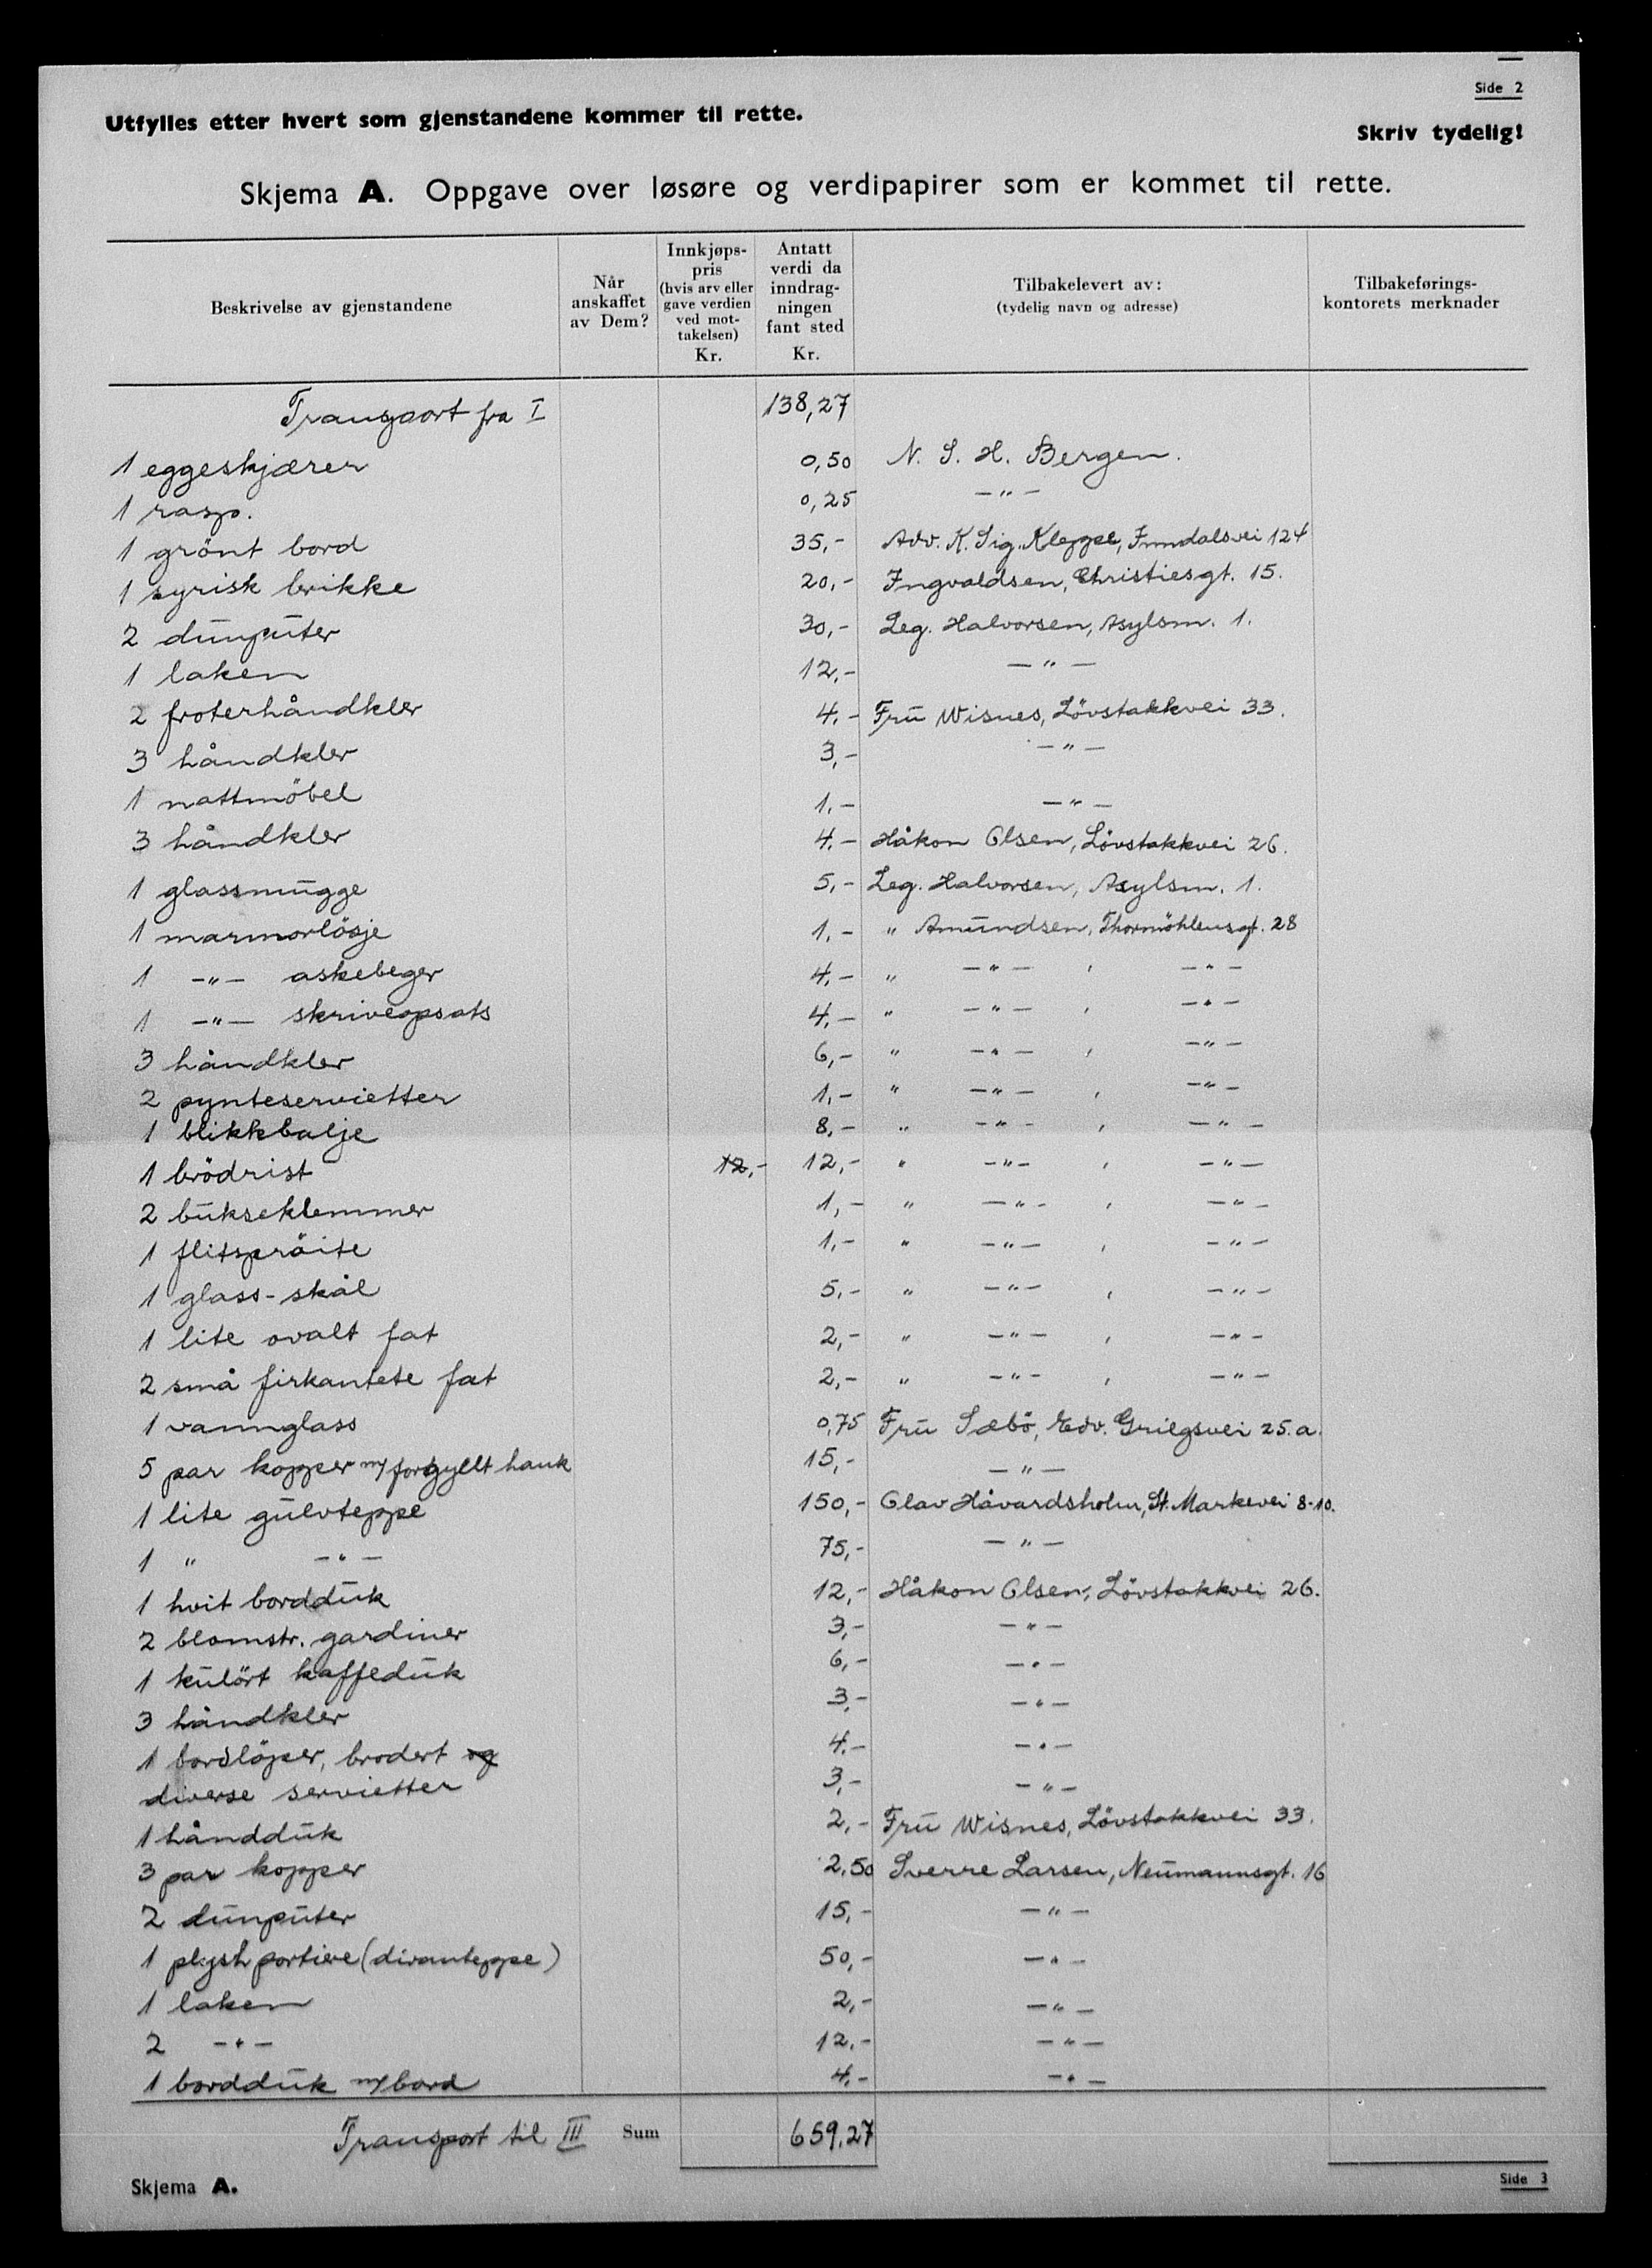 Side 2
Utfylles etter hvert som gjenstandene kommer til rette.
Skriv tydelig!
Skjema A. Oppgave over løsøre og verdipapirer som er kommet til rette.
Beskrivelse av gjenstandene
Når anskaffet av Dem?
Innkjøps-pris (hvis arv eller gave verdien ved mot-takelsen) Kr.
Antatt verdi da inndrag-ningen fant sted Kr.
Tilbakelevert av: (tydelig navn og adresse)
Tilbakeførings-kontorets merknader
Transport fra I 138,27
1 eggeskjærer 0,50 N. S. H. Bergen.
1 rasp. 0,25 -"-
1 grönt bord 35,- Adv. K. Sig. Kleppe, Inndalsvei 124
1 syrisk brikke 20,- Ingvaldsen, Christiesgt. 15.
2 dunputer 30,- Leg. Halvorsen, Asylsm. 1.
1 laken 12,- -"-
2 froterhåndkler 4.- Fru Wisnes, Lövstakkvei 33.
3 håndkler 3,- -"-
1 nattmöbel 1.- -"-
3 håndkler 4.- Håkon Olsen, Lövstakkvei 26.
1 glassmugge 5,- Leg. Halvorsen, Asylsm. 1.
1 marmorlöpje 1,- " Amundsen, Thormöhlensgt. 28
1 -"- askebeger 4,- " -"- , -"-
1 -"- skriveopsats 4,- " -"- , -"-
3 håndkler 6,- " -"- , -"-
2 pynteservietter 1,- " -"- , -"-
1 blikkbalje 8,- " -"- , -"-
1 brödrist 12,- 12,- " -"- , -"-
2 bukseklemmer 1,- " -"- , -"-
1 flitspröite 1,- " -"- , -"-
1 glass-skål 5,- " -"- , -"-
1 lite ovalt fat 2,- " -"- , -"-
2 små firkantete fat 2,- " -"- , -"-
1 vannglass 0,75 Fru Sæbö, Edv. Griegsvei 25.a.
5 par kopper m/forgyllt hank 15,- -"-
1 lite gulvteppe 150,- Olav Håvardsholm, St. Markevei 8-10.
1 " -"- 75,- -"-
1 hvit bordduk 12,- Håkon Olsen, Lövstakkvei 26.
2 blomstr. gardiner 3,- -"-
1 kulört kaffeduk 6,- -"-
3 håndkler 3,- -"-
1 bordlöper, brodert og 4.- -"-
diverse servietter 3,- -"-
1 håndduk 2,- Fru Wisnes, Lövstakkvei 33.
3 par kopper 2.50 Sverre Larsen, Neumannsgt. 16
2 dunputer 15,- -"-
1 plysh portiere (divanteppe) 50,- -"-
1 laken 2,- -"-
2 -"- 12.- -"-
1 bordduk m/bord 4.- -"-
Transport til III Sum 659,27
Skjema A.
Side 3